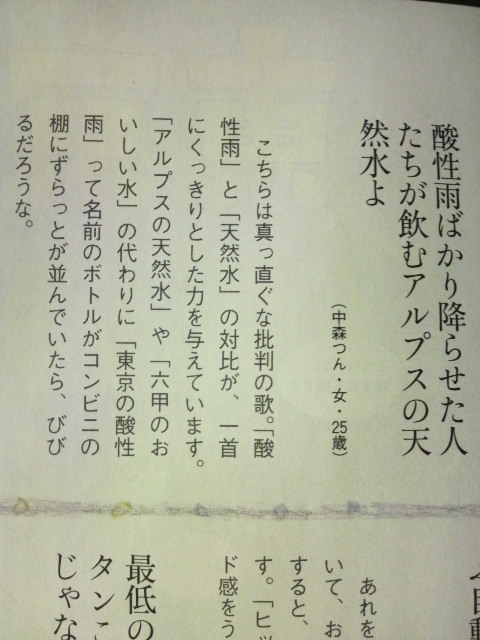 酸性雨ばかり降らせた人
たちが飲むアルプスの天
然水よ
(中森つん・女・25歳)
こちらは真っ直ぐな批判の歌。「酸
性雨」と「天然水」の対比が、一首
にくっきりとした力を与えています。
「アルプスの天然水」や「六甲のお
いしい水」の代わりに「東京の酸性
雨」って名前のボトルがコンビニの
棚にずらっとが並んでいたら、びび
るだろうな。
あれを
いて、お
すると、
す。「ヒッ
ド感をう
最低の
タンこ
じゃな